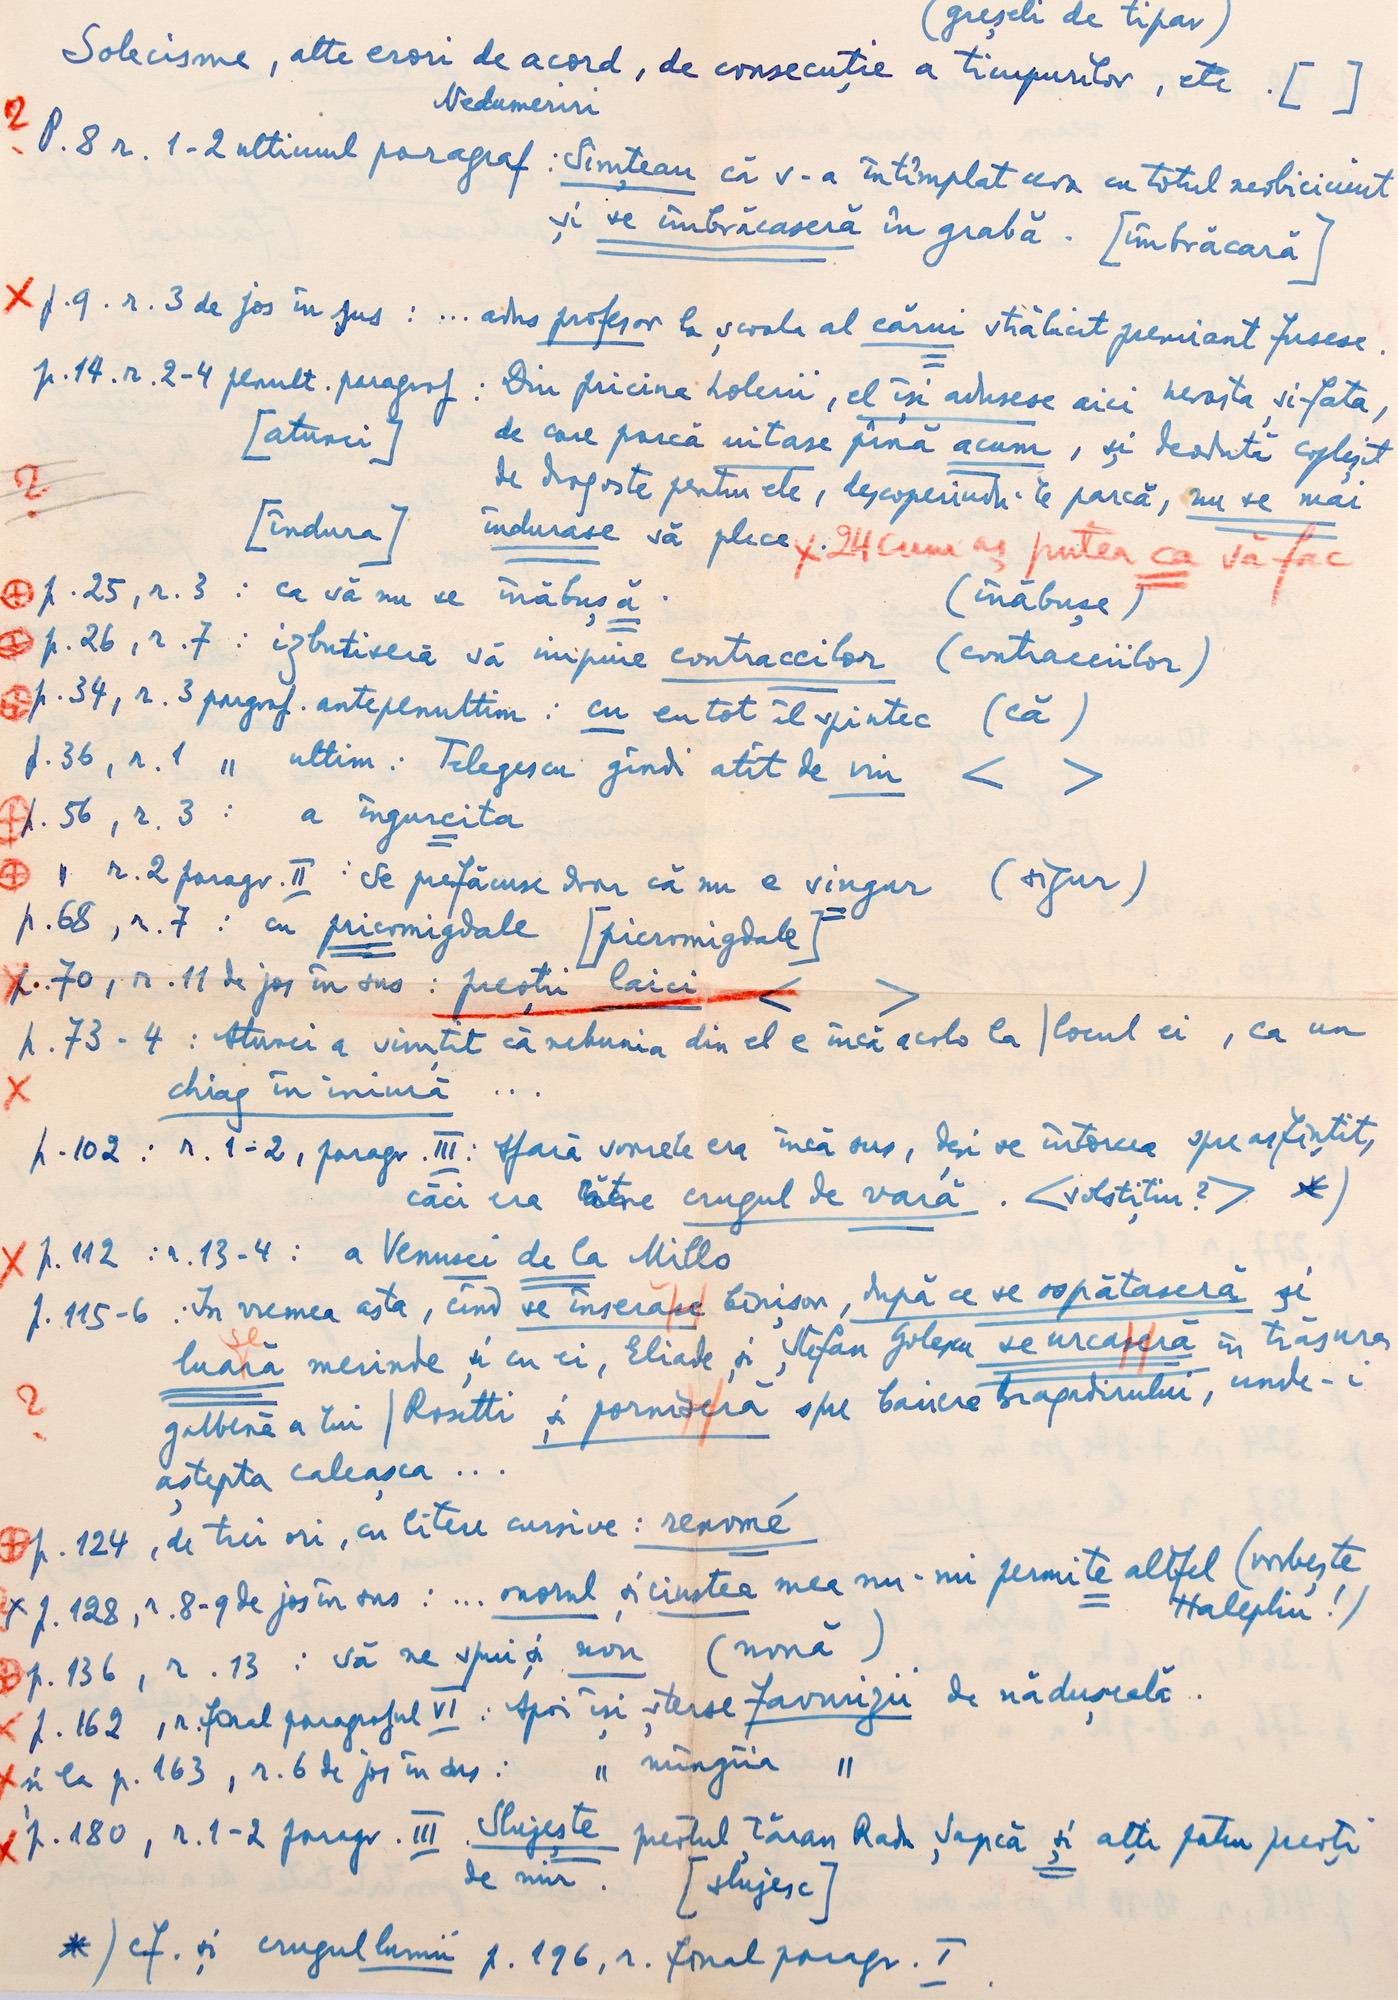 (greșeli de tipar)
Solecisme, alte erori de acord, de consecuție a timpurilor, etc. [ ]
Nedumeriri
? P. 8 r. 1-2 ultimul paragraf: Simțeau că s-a întîmplat ceva cu totul neobicinuit
și se îmbrăcaseră în grabă. [îmbrăcară]
X p. 9. r. 3 de jos în sus: ... adus profesor la școala al cărui strălucit premiant fusese.
p. 14. r. 2-4 penult. paragraf: Din pricina holerii, el își adusese aici nevasta și fata,
[atunci] de care parcă uitase pînă acum, și deodată copleșit
? de dragoste pentru ele, descoperindu-le parcă, nu se mai
[îndura] îndurase să plece. X. 24 cum aș putea ca să fac
⊕ p. 25, r. 3: ca să nu se înăbușă. (înăbușe)
⊕ p. 26, r. 7: izbutiseră să impuie contraccilor (contracciilor)
⊕ p. 34, r. 3 paragraf. antepenultim: cu eu tot îl spintec (că)
p. 36, r. 1 " ultim: Telegescu gîndi atît de viu < >
⊕ p. 56, r. 3: a îngurcita
⊕ " r. 2 paragr. II: Se prefăcuse doar că nu e singur (sigur)
p. 68, r. 7: cu pricomigdale [picromigdale]
X p. 70, r. 11 de jos în sus: preoții laici < >
p. 73-4: Atunci a simțit că nebunia din el e încă acolo la | locul ei, ca un
X chiag în inimă ...
p. 102: r. 1-2, paragr. III: Afară soarele era încă sus, deși se întorcea spre asfințit,
căci era către crugul de vară. <solstițiu?> *)
X p. 112: r. 13-4: a Venusei de la Millo
p. 115-6: În vremea asta, cînd se înserase binișor, după ce se ospătaseră și
se
luară merinde și cu ei, Eliade și Ștefan Golescu se urcaseră în trăsura
? galbenă a lui | Rosetti și porniseră spre bariera Bragadirului, unde-i
aștepta caleașca ...
⊕ p. 124, de trei ori, cu litere cursive: renomé
X p. 128, r. 8-9 de jos în sus: ... onorul și cinstea mea nu-mi permite altfel (vorbește
Halepliu!)
⊕ p. 136, r. 13: să ne spui și nou (nouă)
X p. 162, r. final paragraful VI: Apoi își șterse favurizii de nădușeală.
X și la p. 163, r. 6 de jos în sus: " mîngîia "
X p. 180, r. 1-2 paragr. III. Slujește preotul țăran Radu Șapcă și alți patru preoți
de mir. [slujesc]
*) cf. și crugul lumii p. 196, r. final paragr. I.